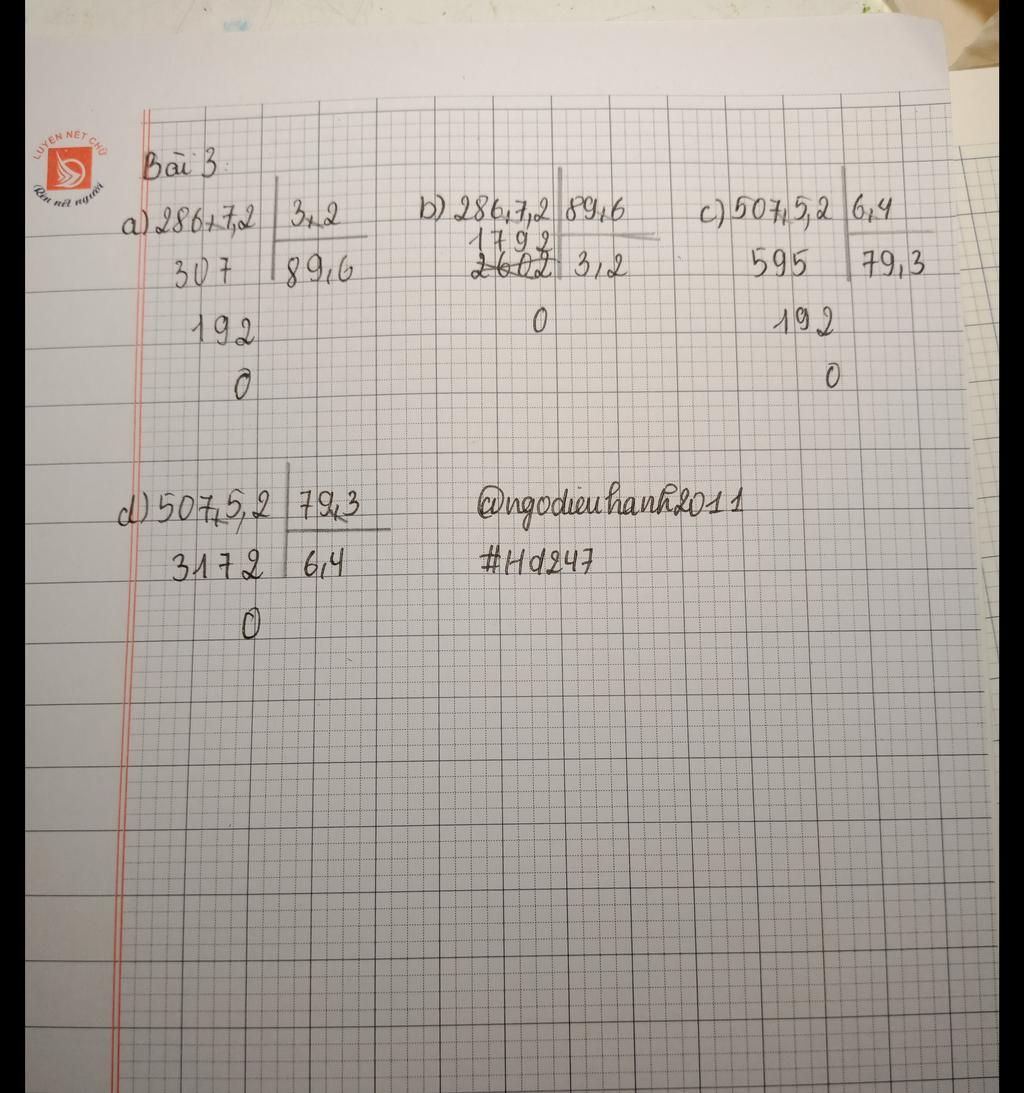 LUYỆN NÉT CHỮ
Rèn nết người
Bài 3:
a) 286,7,2 3,2
307 89,6
192
0
b) 286,7,2 89,6
1792
2602 3,2
0
c) 507,5,2 6,4
595 79,3
192
0
d) 507,5,2 79,3
3172 6,4
0
@ngodieuhanh2011
#Hd247